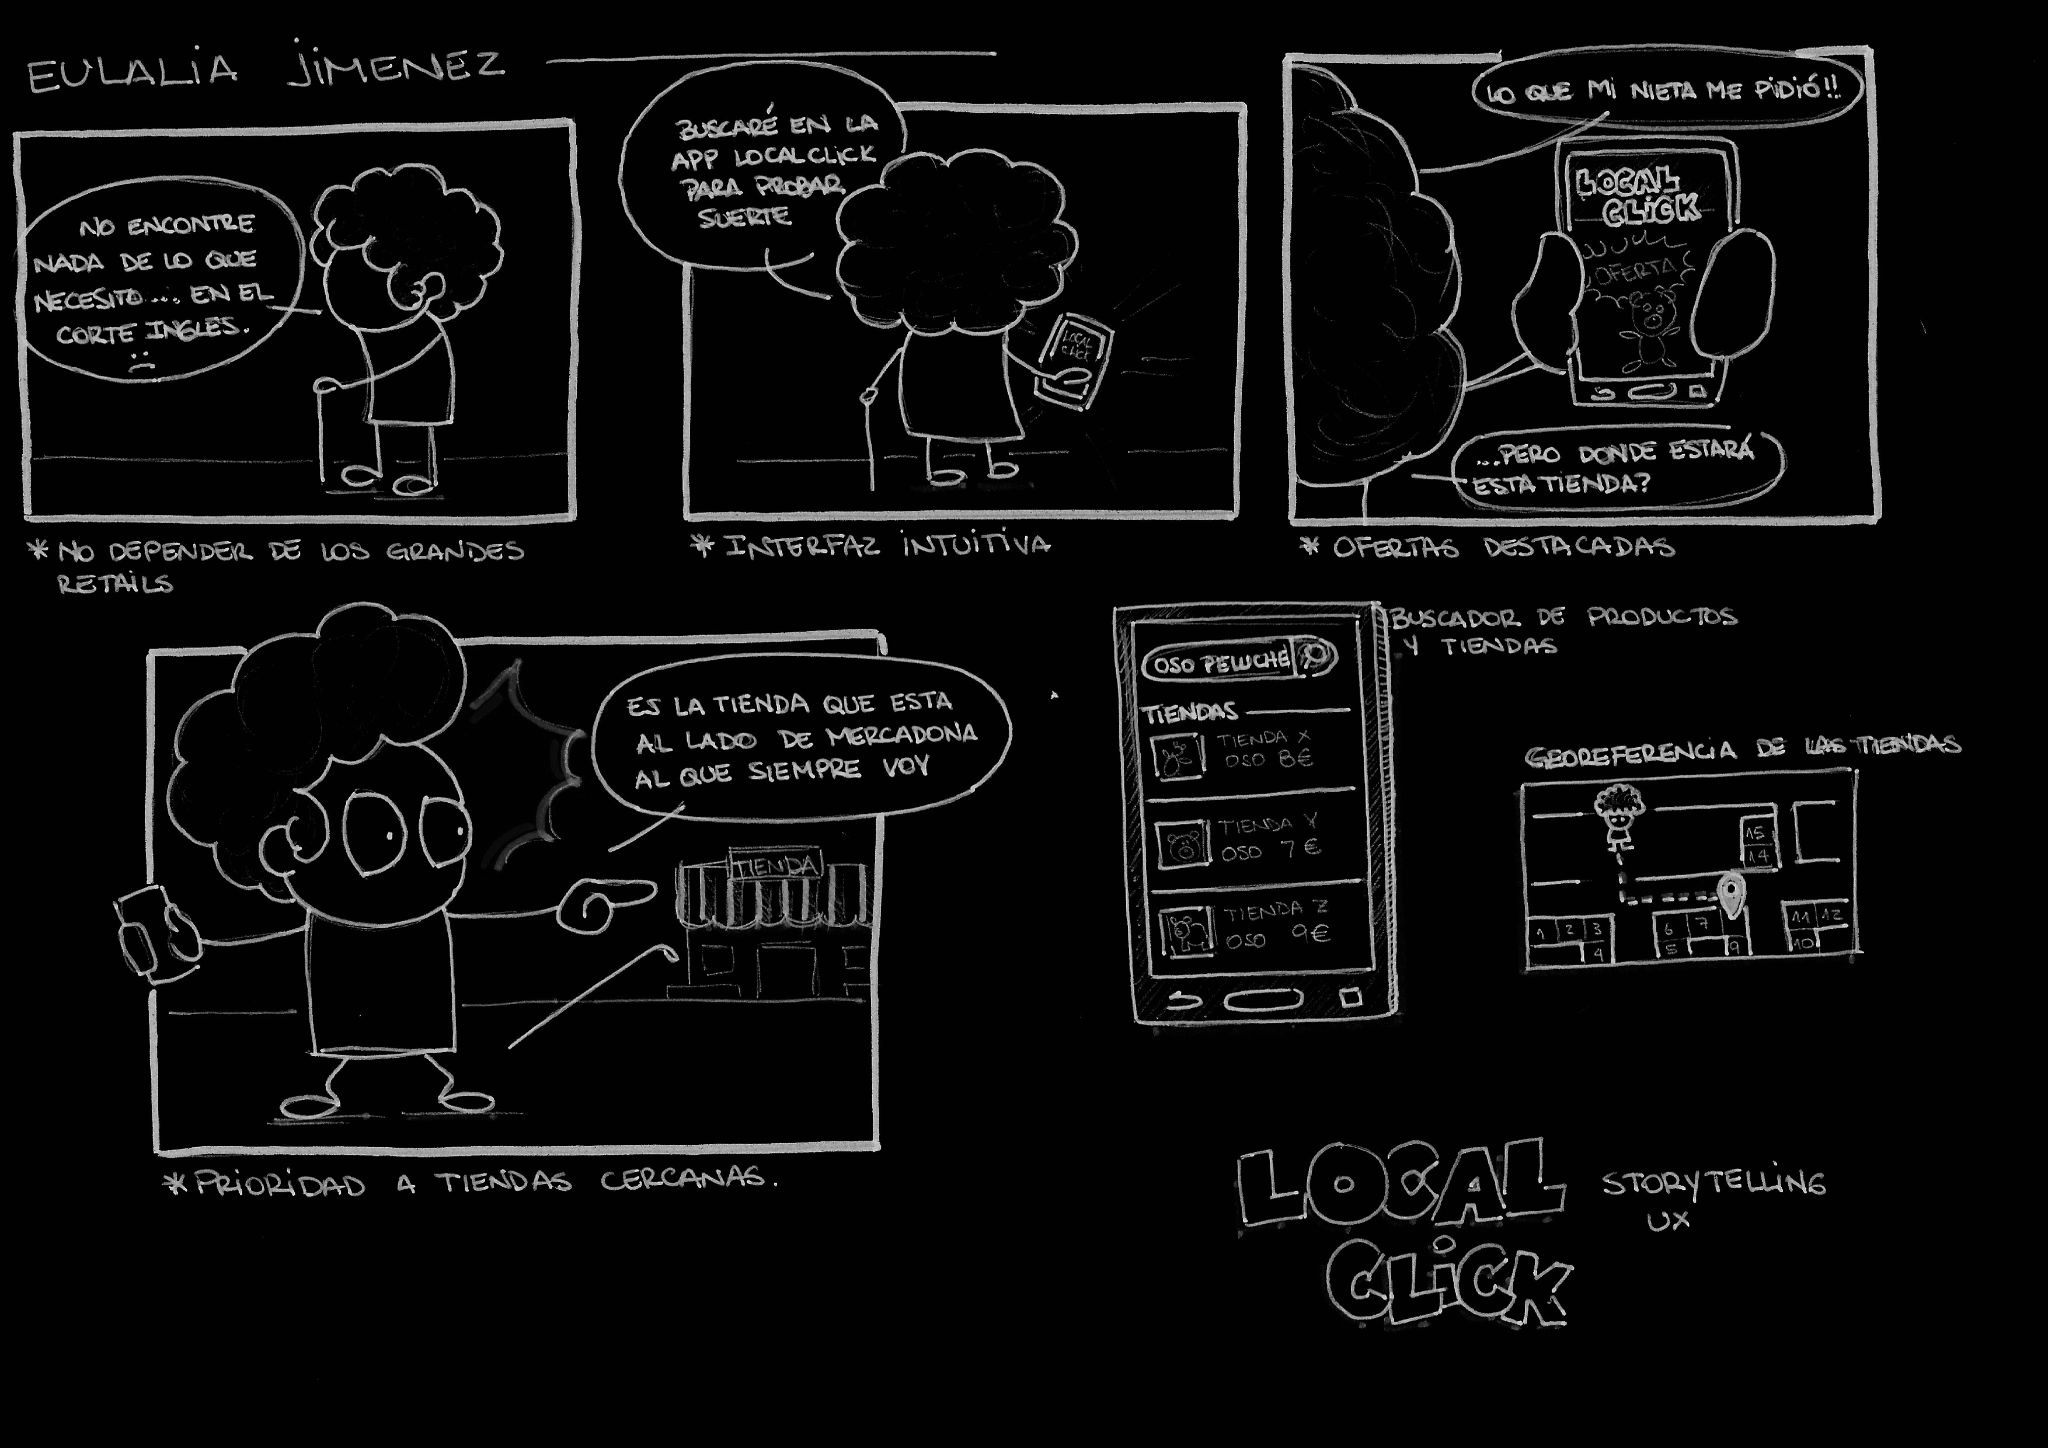 EULALIA JIMENEZ
NO ENCONTRE
NADA DE LO QUE
NECESITO.... EN EL
CORTE INGLES.
:(
* NO DEPENDER DE LOS GRANDES
RETAILS
BUSCARÉ EN LA
APP LOCALCLICK
PARA PROBAR
SUERTE
LOCAL
CLICK
* INTERFAZ INTUITIVA
LO QUE MI NIETA ME PIDIÓ!!
LOCAL
CLICK
OFERTA
...PERO DONDE ESTARÁ
ESTA TIENDA?
* OFERTAS DESTACADAS
ES LA TIENDA QUE ESTA
AL LADO DE MERCADONA
AL QUE SIEMPRE VOY
TIENDA
* PRIORIDAD A TIENDAS CERCANAS.
BUSCADOR DE PRODUCTOS
Y TIENDAS
OSO PELUCHE
TIENDAS
TIENDA X
OSO 8€
TIENDA Y
OSO 7€
TIENDA Z
OSO 9€
GEOREFERENCIA DE LAS TIENDAS
15
14
1 2 3
4
6 7
5 9
11 12
10
LOCAL
CLICK
STORYTELLING
UX